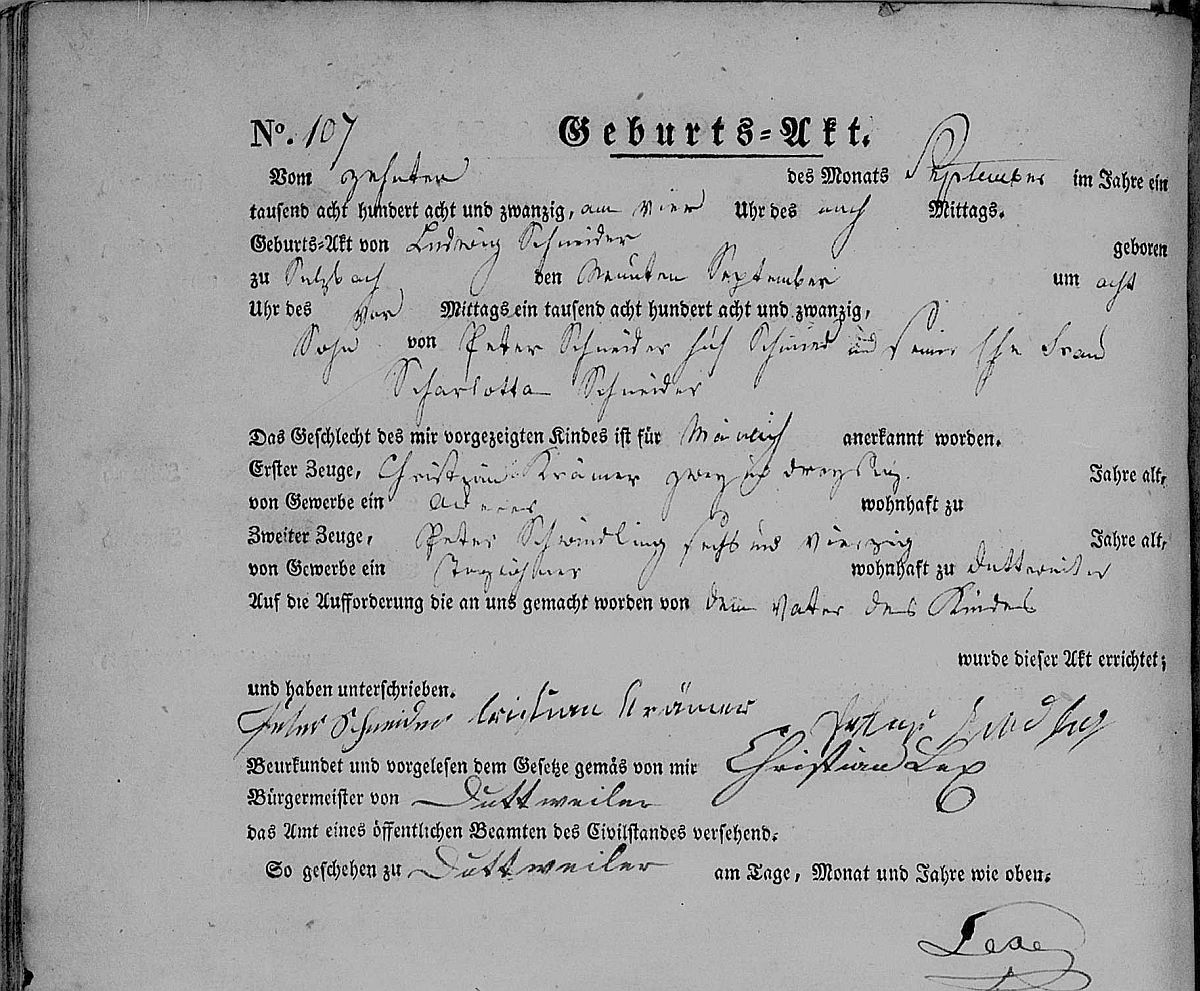 No. 107 Geburts-Akt.
Vom zehnten des Monats September im Jahre ein
tausend acht hundert acht und zwanzig, am vier Uhr des nach Mittags.
Geburts-Akt von Ludwig Schneider geboren
zu Sulzbach den Neunten September um acht
Uhr des vor Mittags ein tausend acht hundert acht und zwanzig,
Sohn von Peter Schneider Schmied und seiner Ehe Frau
Scharlotta Schneider
Das Geschlecht des mir vorgezeigten Kindes ist für Mänlich anerkannt worden.
Erster Zeuge, Christian Krämer zwey und dreysig Jahre alt,
von Gewerbe ein wohnhaft zu
Zweiter Zeuge, Peter Schwindling sechs und vierzig Jahre alt,
von Gewerbe ein wohnhaft zu Duttweiler
Auf die Aufforderung die an uns gemacht worden von dem Vater des Kindes
wurde dieser Akt errichtet;
und haben unterschrieben.
Peter Schneider Cristian Krämer
Beurkundet und vorgelesen dem Gesetze gemäs von mir Christian Lex
Bürgermeister von Duttweiler
das Amt eines öffentlichen Beamten des Civilstandes versehend.
So geschehen zu Duttweiler am Tage, Monat und Jahre wie oben.